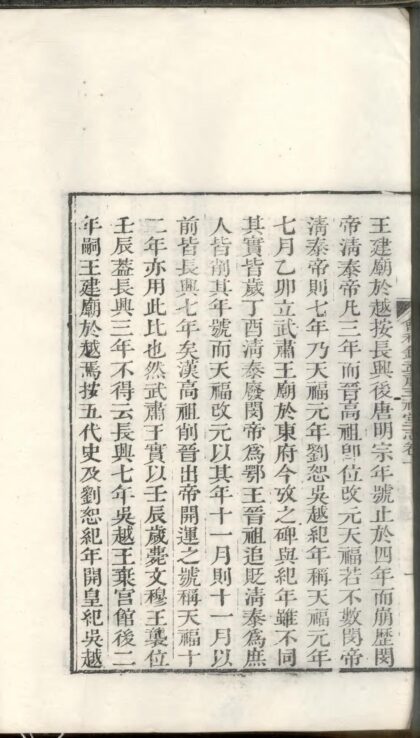 王建廟於越按長興後唐明宗年號止於四年而崩歷閔
帝淸泰帝凡三年而晉高祖卽位改元天福若不數閔帝
淸泰帝則七年乃天福元年劉恕吳越紀年稱天福元年
七月乙卯立武肅王廟於東府今攷之碑與紀年雖不同
其實皆歲丁酉淸泰廢閔帝爲鄂王晉祖追貶淸泰爲庶
人皆削其年號而天福改元以其年十一月則十一月以
前皆長興七年矣漢高祖削晉出帝開運之號稱天福十
二年亦用此比也然武肅王實以壬辰歲薨文穆王襲位
壬辰蓋長興三年不得云長興七年吳越王棄宮館後二
年嗣王建廟於越焉按五代史及劉恕紀年開皇紀吳越